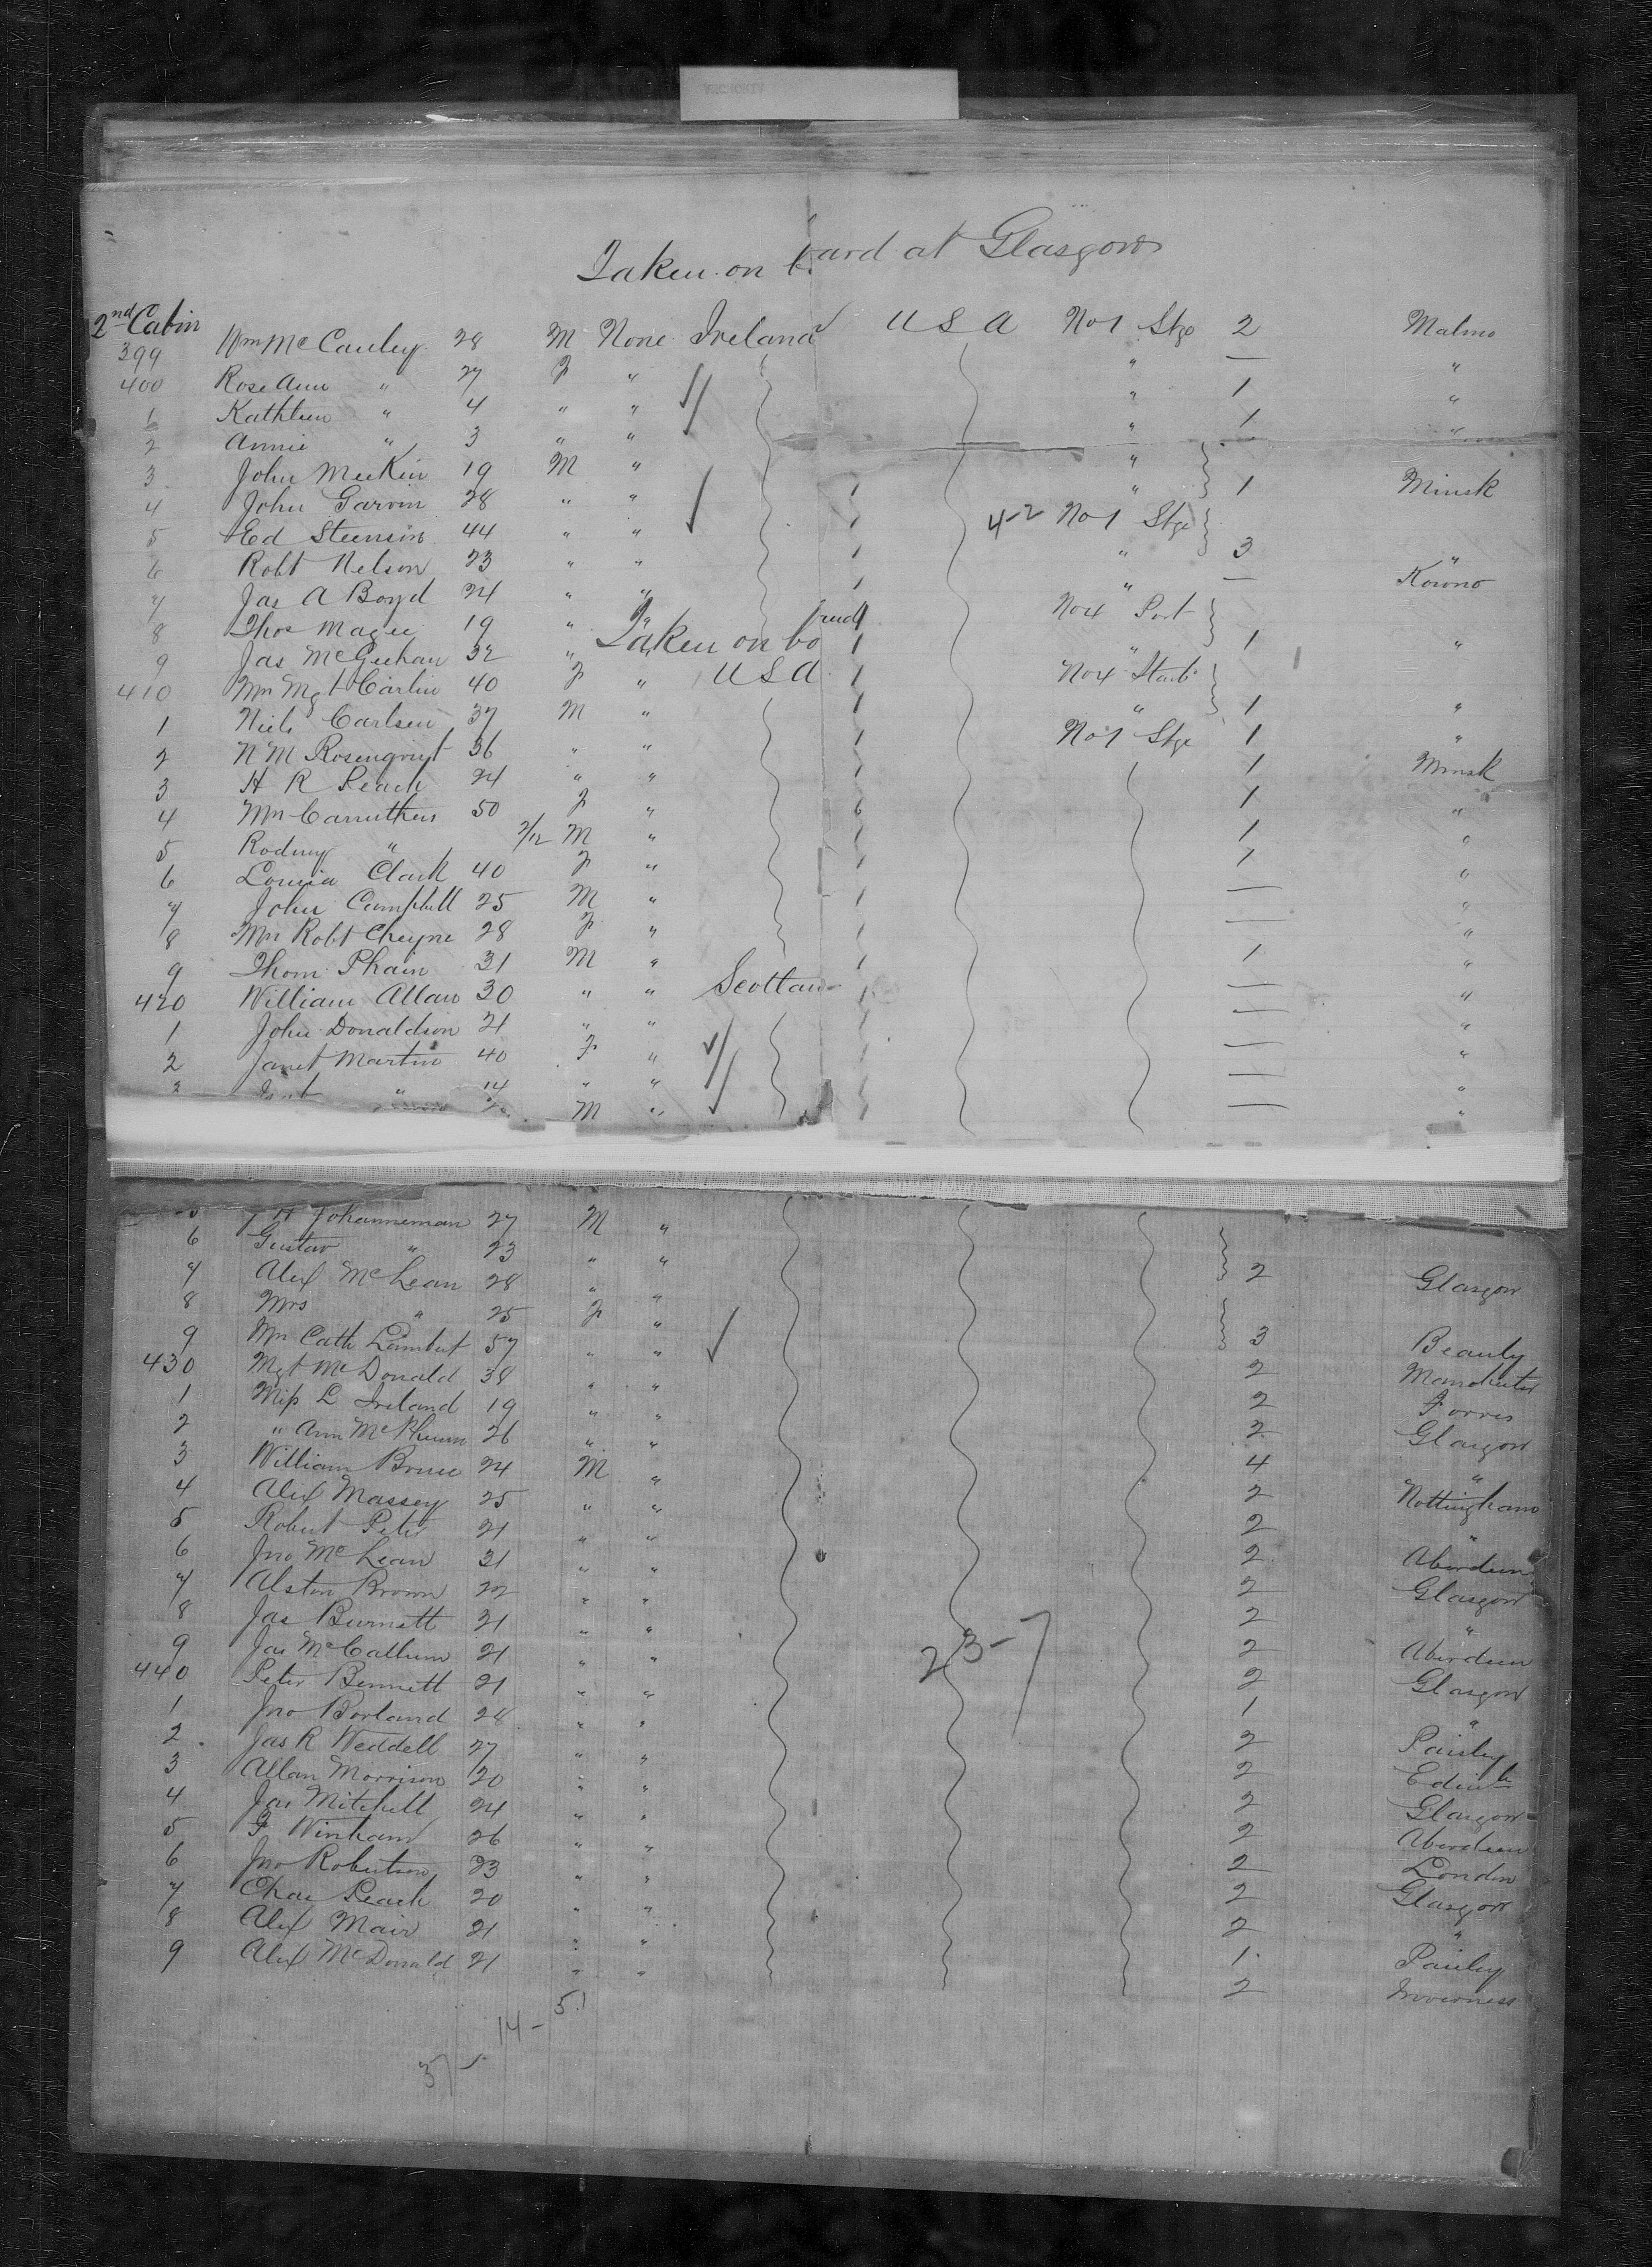 Taken on board at Glasgow
2nd Cabin
399 Wm McCauley 28 M None Ireland USA No 1 Stge 2 Malmo
400 Rose Ann " 27 F " " — "
1 Kathleen " 4 " " " 1 "
2 Annie " 3 " " " 1 "
3 John Meekin 19 M " "
4 John Garvin 28 " " 1 " 1 Minsk
5 Ed Steenson 44 " " 1 4-2 No 1 Stge
6 Robt Nelson 23 " " 1 " 3 "
7 Jas A Boyd 24 " " 1 " — Kowno
8 Thos Magee 19 " " 1 No 4 Port
Taken on bo
9 Jas McGeehan 32 " " 1 " 1 "
410 Mrs Mgt Carlin 40 F " USA 1 No 4 Starb
1 Niels Carlsen 37 M " 1 " 1 "
2 N M Rosenqvist 36 " " 1 No 1 Stge 1 "
3 H R Peach 24 " " 1 1 Minsk
4 Mrs Carruthers 50 F " 6 1 "
5 Rodney " 2/12 M " 1 1 "
6 Louisa Clark 40 F " 1 1 "
7 John Campbell 25 M " 1 — "
8 Mrs Robt Cheyne 28 F " 1 — "
9 Thom Phain 31 M " 1 1 "
420 William Allan 30 " " Scotlan 1 — "
1 John Donaldson 21 " " 1 — "
2 Janet Martin 40 F " 1 — "
3 " 14 " " — "
M " — "
Johanneman 27 M "
6 Gustav " 23 " "
7 Alex McLean 28 " " 2 Glasgow
8 Mrs " 25 F "
9 Mrs Cath Lambert 57 " " 3 Beauly
430 Mgt McDonald 38 " " 2 Manchester
1 Miss L Ireland 19 " " 2 Forres
2 " Ann McPherson 26 " " 2 Glasgow
3 William Bruce 24 M " 4 "
4 Alex Massey 25 " " 2 Nottingham
5 Robert Peter 21 " " 2 "
6 Jno McLean 31 " " 2 Aberdeen
7 Alston Brown 22 " " 2 Glasgow
8 Jas Burnett 21 " " 2 "
9 Jas McCallum 21 " " 23-7 2 Aberdeen
440 Peter Bennett 21 " " 2 Glasgow
1 Jno Borland 28 " " 1 "
2 Jas R Weddell 27 " " 2 Paisley
3 Allan Morrison 20 " " 2 Edinb
4 Jas Mitchell 24 " " 2 Glasgow
5 F Winham 26 " " 2 Aberdeen
6 Jno Robertson 23 " " 2 London
7 Chas Peach 20 " " 2 Glasgow
8 Alex Mair 21 " " 2 "
9 Alex McDonald 21 " " 1 Paisley
2 Inverness
51
14 -